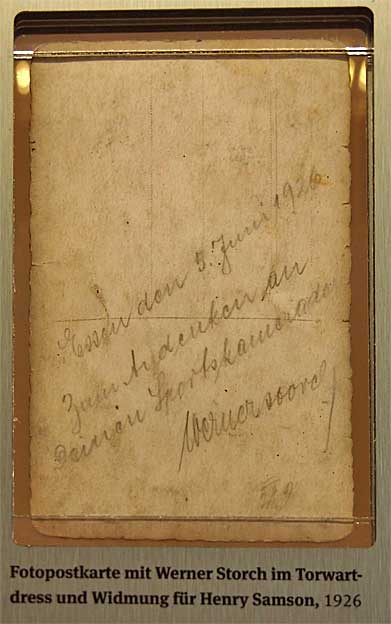 Essen den 5. Juni 1926
Zum Andenken an
Deinen Sportskameraden
Werner Storch
Fotopostkarte mit Werner Storch im Torwart-
dress und Widmung für Henry Samson, 1926